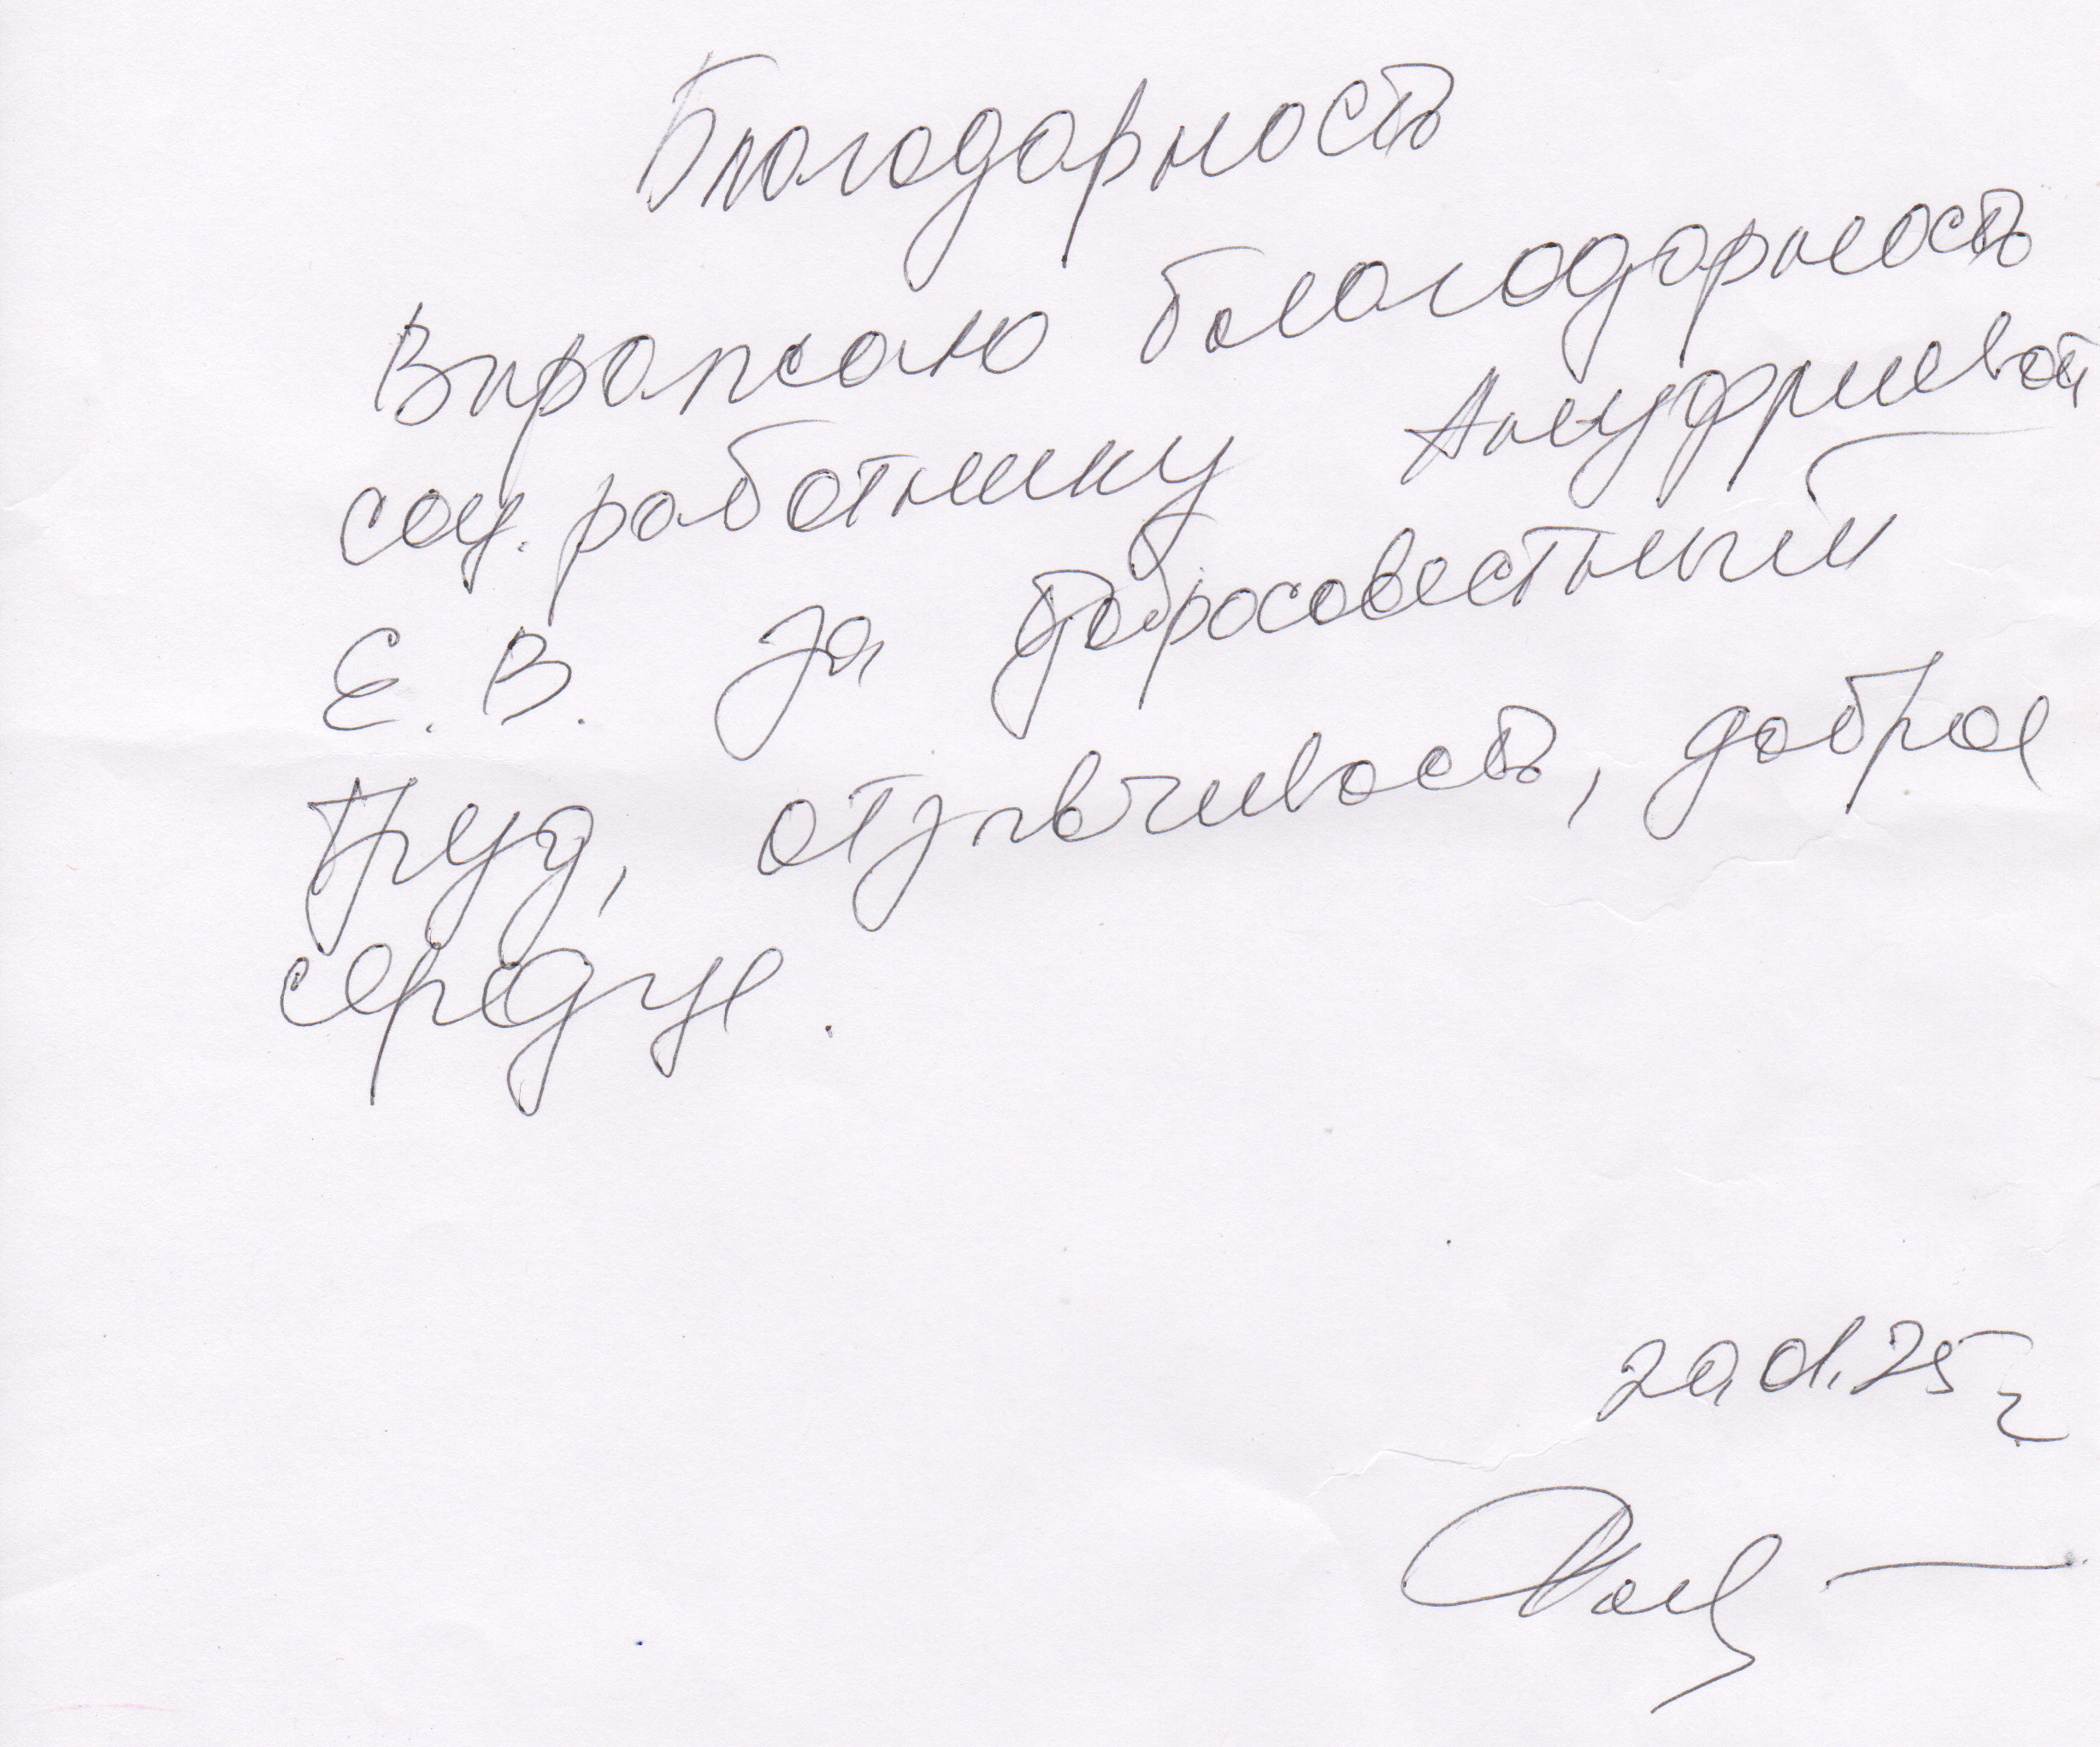 Благодарность
Выражаю благодарность
соц. работнику Ануфриевой
Е. В. за добросовестный
труд, отзывчивость, доброе
сердце.
20.01.25 г